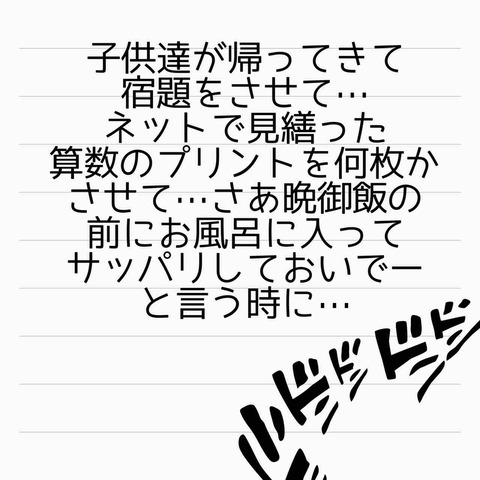 子供達が帰ってきて
宿題をさせて…
ネットで見繕った
算数のプリントを何枚か
させて…さあ晩御飯の
前にお風呂に入って
サッパリしておいでー
と言う時に…
ドドドド